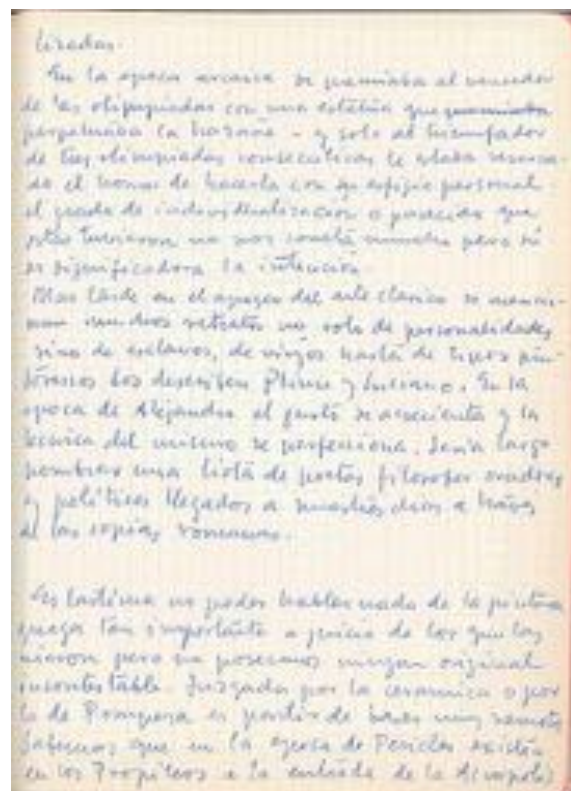 tiradas.
En la epoca arcaica se premiaba al vencedor
de las olimpiadas con una estatua que premiaba
perpetuaba la hazaña - y solo al triunfador
de tres olimpiadas consecutivas le estaba reserva-
do el honor de hacerla con su efigie personal.
el grado de individualización o parecido que
estas tuvieron no nos consta mucho pero si
es significadora la intención.
Mas tarde en el apogeo del arte clasico se mencio-
nan muchos retratos no solo de personalidades
sino de esclavos, de viejos hasta de tipos pin-
torescos los describen Plinio y Luciano. En la
epoca de Alejandro el gusto se acrecienta y la
tecnica del mismo se perfecciona. Seria largo
nombrar una lista de poetas filosofos oradores
y politicos llegados a nuestros dias a traves
de las copias romanas.
Es lastima no poder hablar nada de la pintura
griega tan importante a juicio de los que las
vieron pero no poseemos ningun original
incontestable. Juzgada por la ceramica o por
la de Pompeya es partir de bases muy remotas
Sabemos que en la epoca de Pericles existia
en los Propileos a la entrada de la Acropolis